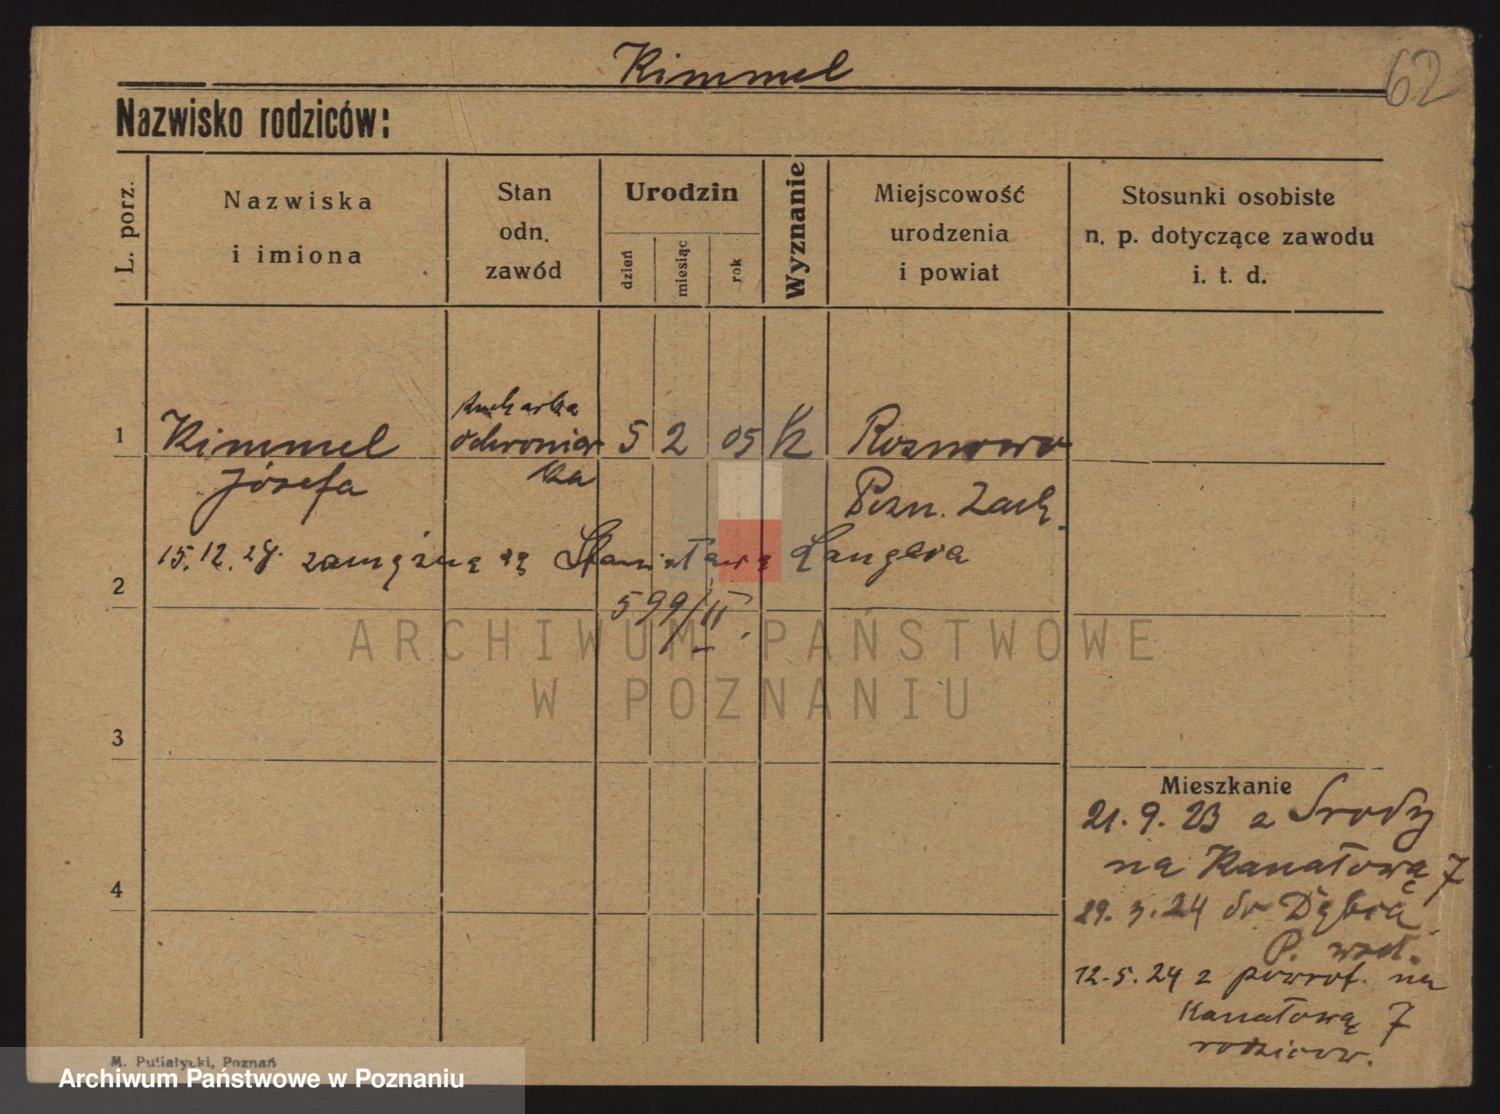 Kimmel
62
Nazwisko rodziców:
L. porz.
Nazwiska
i imiona
Stan
odn.
zawód
Urodzin
dzień
miesiąc
rok
Wyznanie
Miejscowość
urodzenia
i powiat
Stosunki osobiste
n. p. dotyczące zawodu
i. t. d.
kucharka
1 Kimmel ochroniar 5 2 05 K Roznowo
Józefa ka Pozn. Zach.
15.12.28. zamężna za Stanisława Langera
2
599/II.
3
Mieszkanie
21. 9. 23 z Środy
na Kanałową 7
4
29. 3. 24 do
P.
12. 5. 24 z powrot. na
Kanałową 7
rodziców.
M. Putiatycki, Poznań
ARCHIWUM PAŃSTWOWE
W POZNANIU
Archiwum Państwowe w Poznaniu